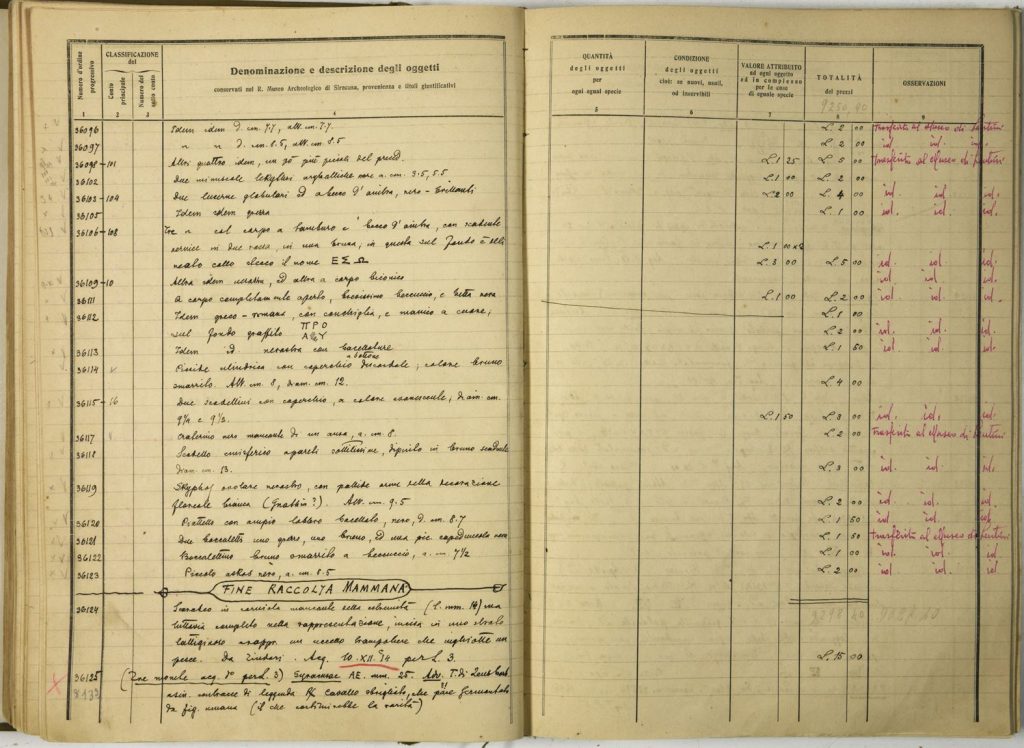 Numero d'ordine progressivo
CLASSIFICAZIONE del
Conto principale
Numero del sotto conto
Denominazione e descrizione degli oggetti
conservati nel R. Museo Archeologico di Siracusa, provenienza e titoli giustificativi
1 2 3 4
36096 Idem idem d. cm. 7.7, alt. cm. 7.7.
36097 " " d. cm. 8.5, alt. cm. 8.5
36098-101 Altri quattro idem, un pò più piccoli del preced.
36102 Due minuscole lekythoi aryballiche nere a. cm. 3.5, 5.5
36103-104 Due lucerne globulari ad a becco d'anitra, nero-brillanti
36105 Idem idem grezza
36106-108 Tre " col corpo a tamburo e becco d'anitra, con
cornice in due rossa, in una bruna; in questa sul fondo è
cotto il nome ΕΣΩ
36109-10 Altra idem, ed altra a corpo biconico
36111 A corpo completamente aperto, beccuccio, e tutta rosa
36112 Idem greco-romana, con conchiglia, e manico a cuore;
sul fondo graffito ΠΡΟ
36113 Idem id nerastra con baccellature
36114 Pisside cilindrica con coperchio a bottone; colore bruno
smarrito. Alt. cm. 8, diam. cm. 12.
36115-16 Due scodellini con coperchio, a colore evanescente; diam. cm.
9½ e 9⅓.
36117 Craterino nero mancante di un ansa, a. cm. 8.
36118 Scodello emisferico a pareti sottilissime, dipinto in bruno
diam. cm. 13.
36119 Skyphos ovolare nerastro, con pallide orme della decorazione
floreale bianca (Gnathia?). Alt. cm. 9.5
36120 Piattello con ampio labbro baccellato, nero, d. cm. 8.7
36121 Due boccaletti uno grezzo, uno bruno, ed una pic. capeduncola nera
36122 Boccalettino bruno smarrito a beccuccio, a. cm. 7½
36123 Piccolo askos nero, a. cm. 8.5
FINE RACCOLTA MAMMANA
36124 Scarabeo in corniola mancante nella estremità (l. mm. 14) ma
tuttavia completo nella rappresentazione, incisa in uno stralo
lattiginoso rappr. un uccello trampoliere che inghiotte un
pesce. Da Tindari. Acq. 10.XII.°14 per L. 3.
36125 (Due monete acq. d° per L. 3) Syracusae AE. mm. 25. Adv. T. di Zeus
sin. contracc. di leggenda R/ Cavallo sbrigliato, che pare sormontato
da fig. umana (il che costituirebbe la rarità)
QUANTITÀ degli oggetti per ogni ugual specie
CONDIZIONE degli oggetti cioè: se nuovi, usati, od inservibili
VALORE ATTRIBUITO ad ogni oggetto ed in complesso per le cose di eguale specie
TOTALITÀ dei prezzi
OSSERVAZIONI
5 6 7 8 9
9250,90
L. 2 00 Trasferito al Museo di Lentini
L. 2 00 id. id. id.
L. 1 25 L. 5 00 Trasferito al Museo di Lentini
L. 1 00 L. 2 00
L. 2 00 L. 4 00 id. id. id.
L. 1 00 id. id. id.
L. 1 00 x2
L. 3 00 L. 5 00 id. id. id.
id. id. id.
L. 1 00 L. 2 00 id. id. id.
L. 1 00
L. 2 00 id. id. id.
L. 1 50 id. id. id.
L. 4 00
L. 1 50 L. 3 00 id. id. id.
L. 2 00 Trasferito al Museo di Lentini
L. 3 00 id. id. id.
L. 2 00 id. id. id.
L. 1 50 id. id. id.
L. 1 50 Trasferito al Museo di Lentini
L. 1 00 id. id. id.
L. 2 00 id. id. id.
L. 15 00